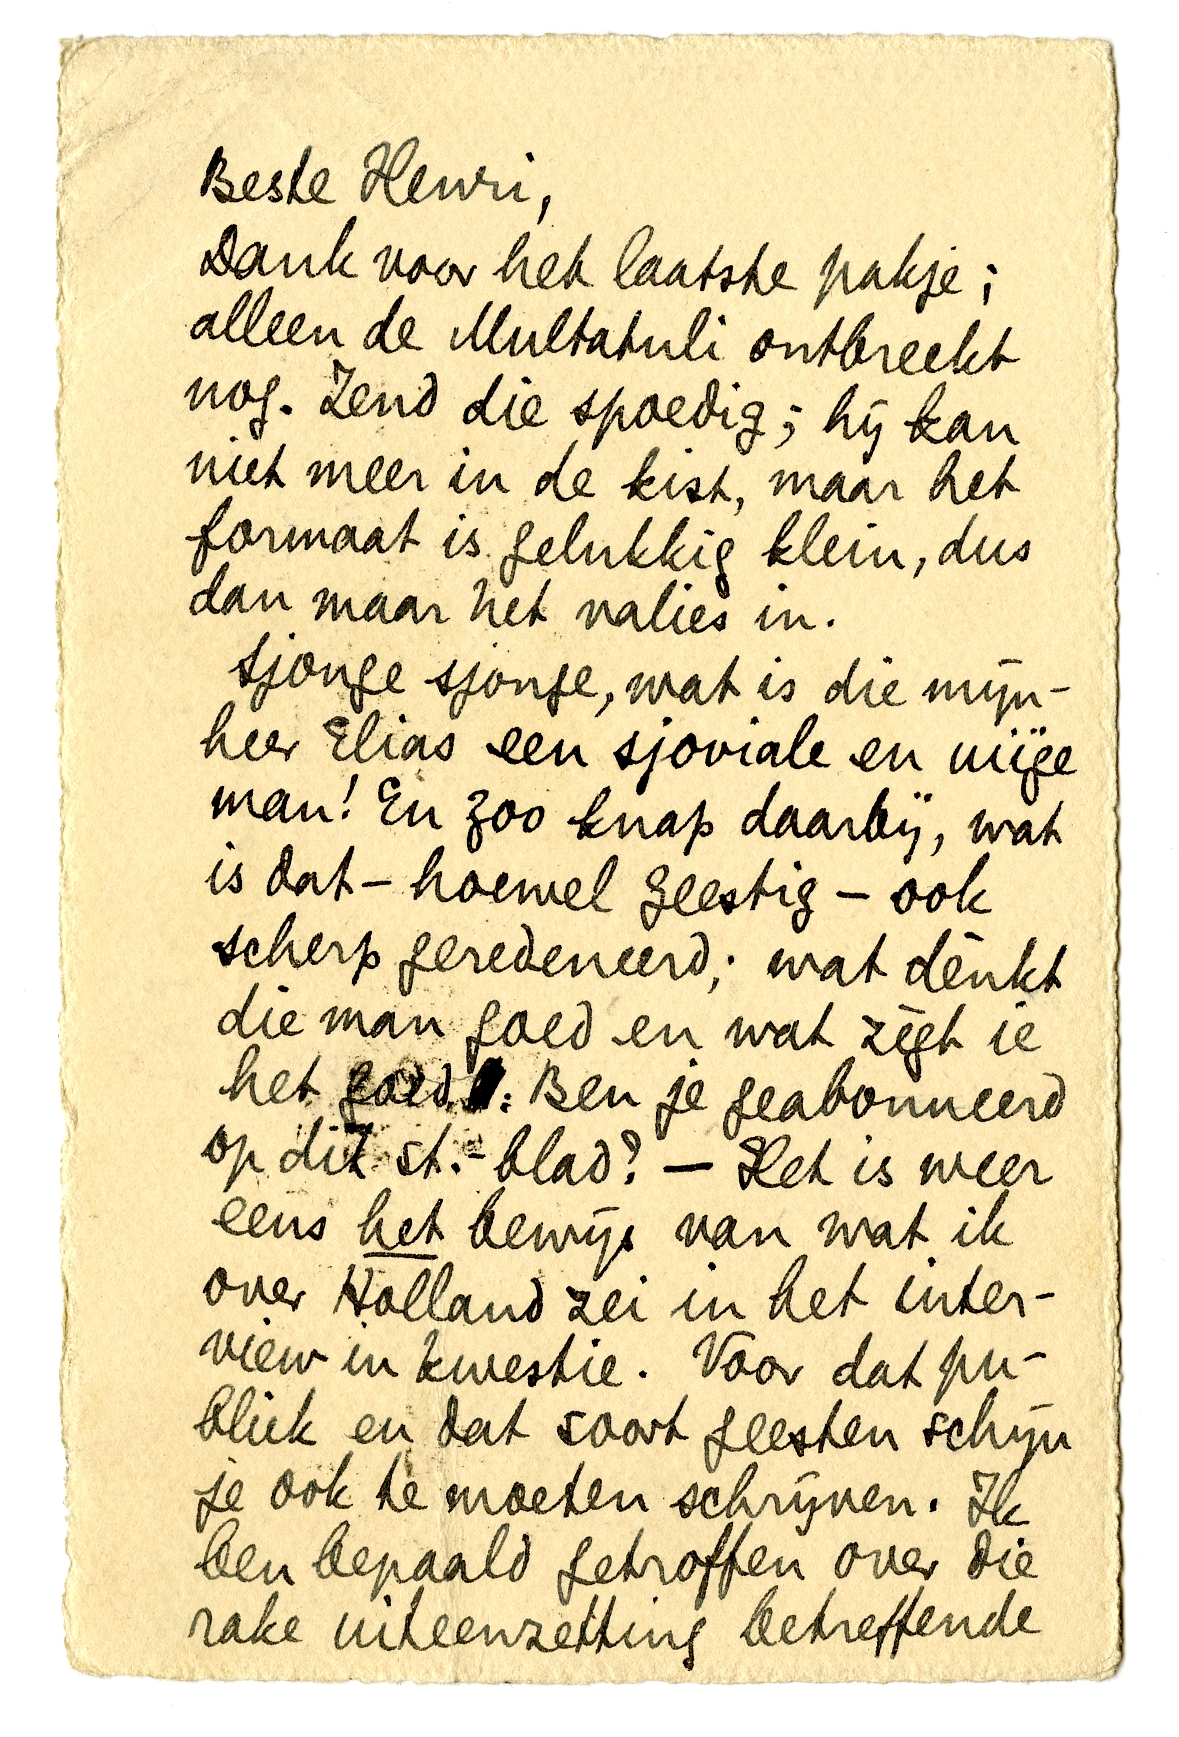 Beste Henri,
Dank voor het laatste pakje;
alleen de Multatuli ontbreekt
nog. Zend die spoedig; hij kan
niet meer in de kist, maar het
formaat is gelukkig klein, dus
dan maar het valies in.
Sjonge sjonge, wat is die mijn-
heer Elias een sjoviale en
man! En zoo knap daarbij, wat
is dat – hoewel geestig – ook
scherp geredeneerd; wat dènkt
die man goed en wat zègt ie
het goed. Ben je geabonneerd
op dit st.-blad? — Het is weer
eens het bewijs van wat ik
over Holland zei in het inter-
view in kwestie. Voor dat pu-
bliek en dat soort geesten schijn
je ook te moeten schrijven. Ik
ben bepaald getroffen over die
rake uiteenzetting betreffende